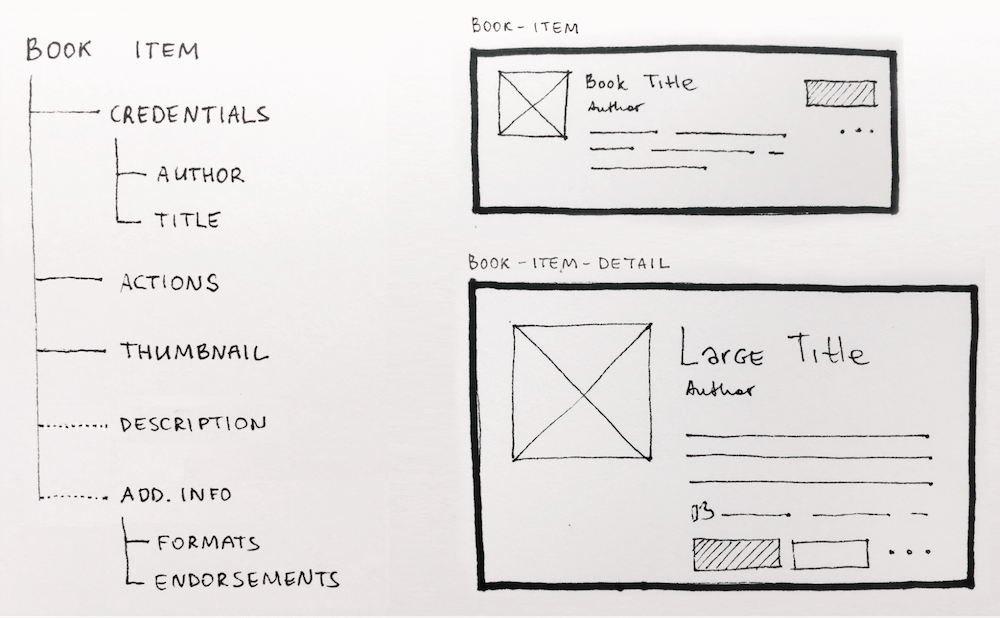 BOOK ITEM
CREDENTIALS
AUTHOR
TITLE
ACTIONS
THUMBNAIL
DESCRIPTION
ADD. INFO
FORMATS
ENDORSEMENTS
BOOK-ITEM
Book Title
Author
BOOK-ITEM-DETAIL
LARGE Title
Author